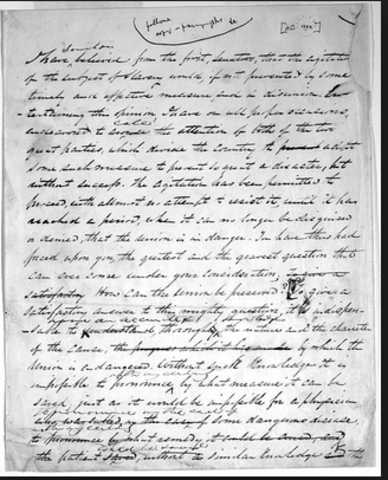 follows
copy - paragraphs &c
Senators
I have, believed from the first, Senators, that the agitation
of the subject of slavery would, if not prevented by some
timely and effective measure, end in disunion. En-
tertaining this opinion, I have on all proper occasions,
endeavored to call the attention of both of the two
great parties, which divide the country to adopt
some such measure to prevent so great a disaster, but
without success. The agitation has been permitted to
proceed, with almost no attempt to resist it, until it has
reached a period, when it can no longer be disguised
or denied, that the Union is in danger. You have thus had
forced upon you, the greatest and the gravest question that
can ever come under your consideration; to give a
satisfactory How can the Union be preserved? To give a
satisfactory answer to this mighty question, it is indispen-
sable to have an accurate & thorough knowledge
understand, thoroughly the nature and the character
of the cause, by which the
Union is endangered. Without such Knowledge it is
impossible to pronounce, with certainty, by what measure it can be
saved, just as it would be impossible for a physician
to pronounce in the case of
some dangerous disease,
to pronounce by what remedy it could be cured, and
the patient saved, without similar Knowledge of the